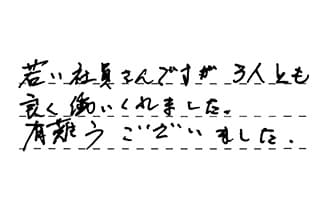 若い社員さんですが3人とも
良く働いくれました。
有難うございました.